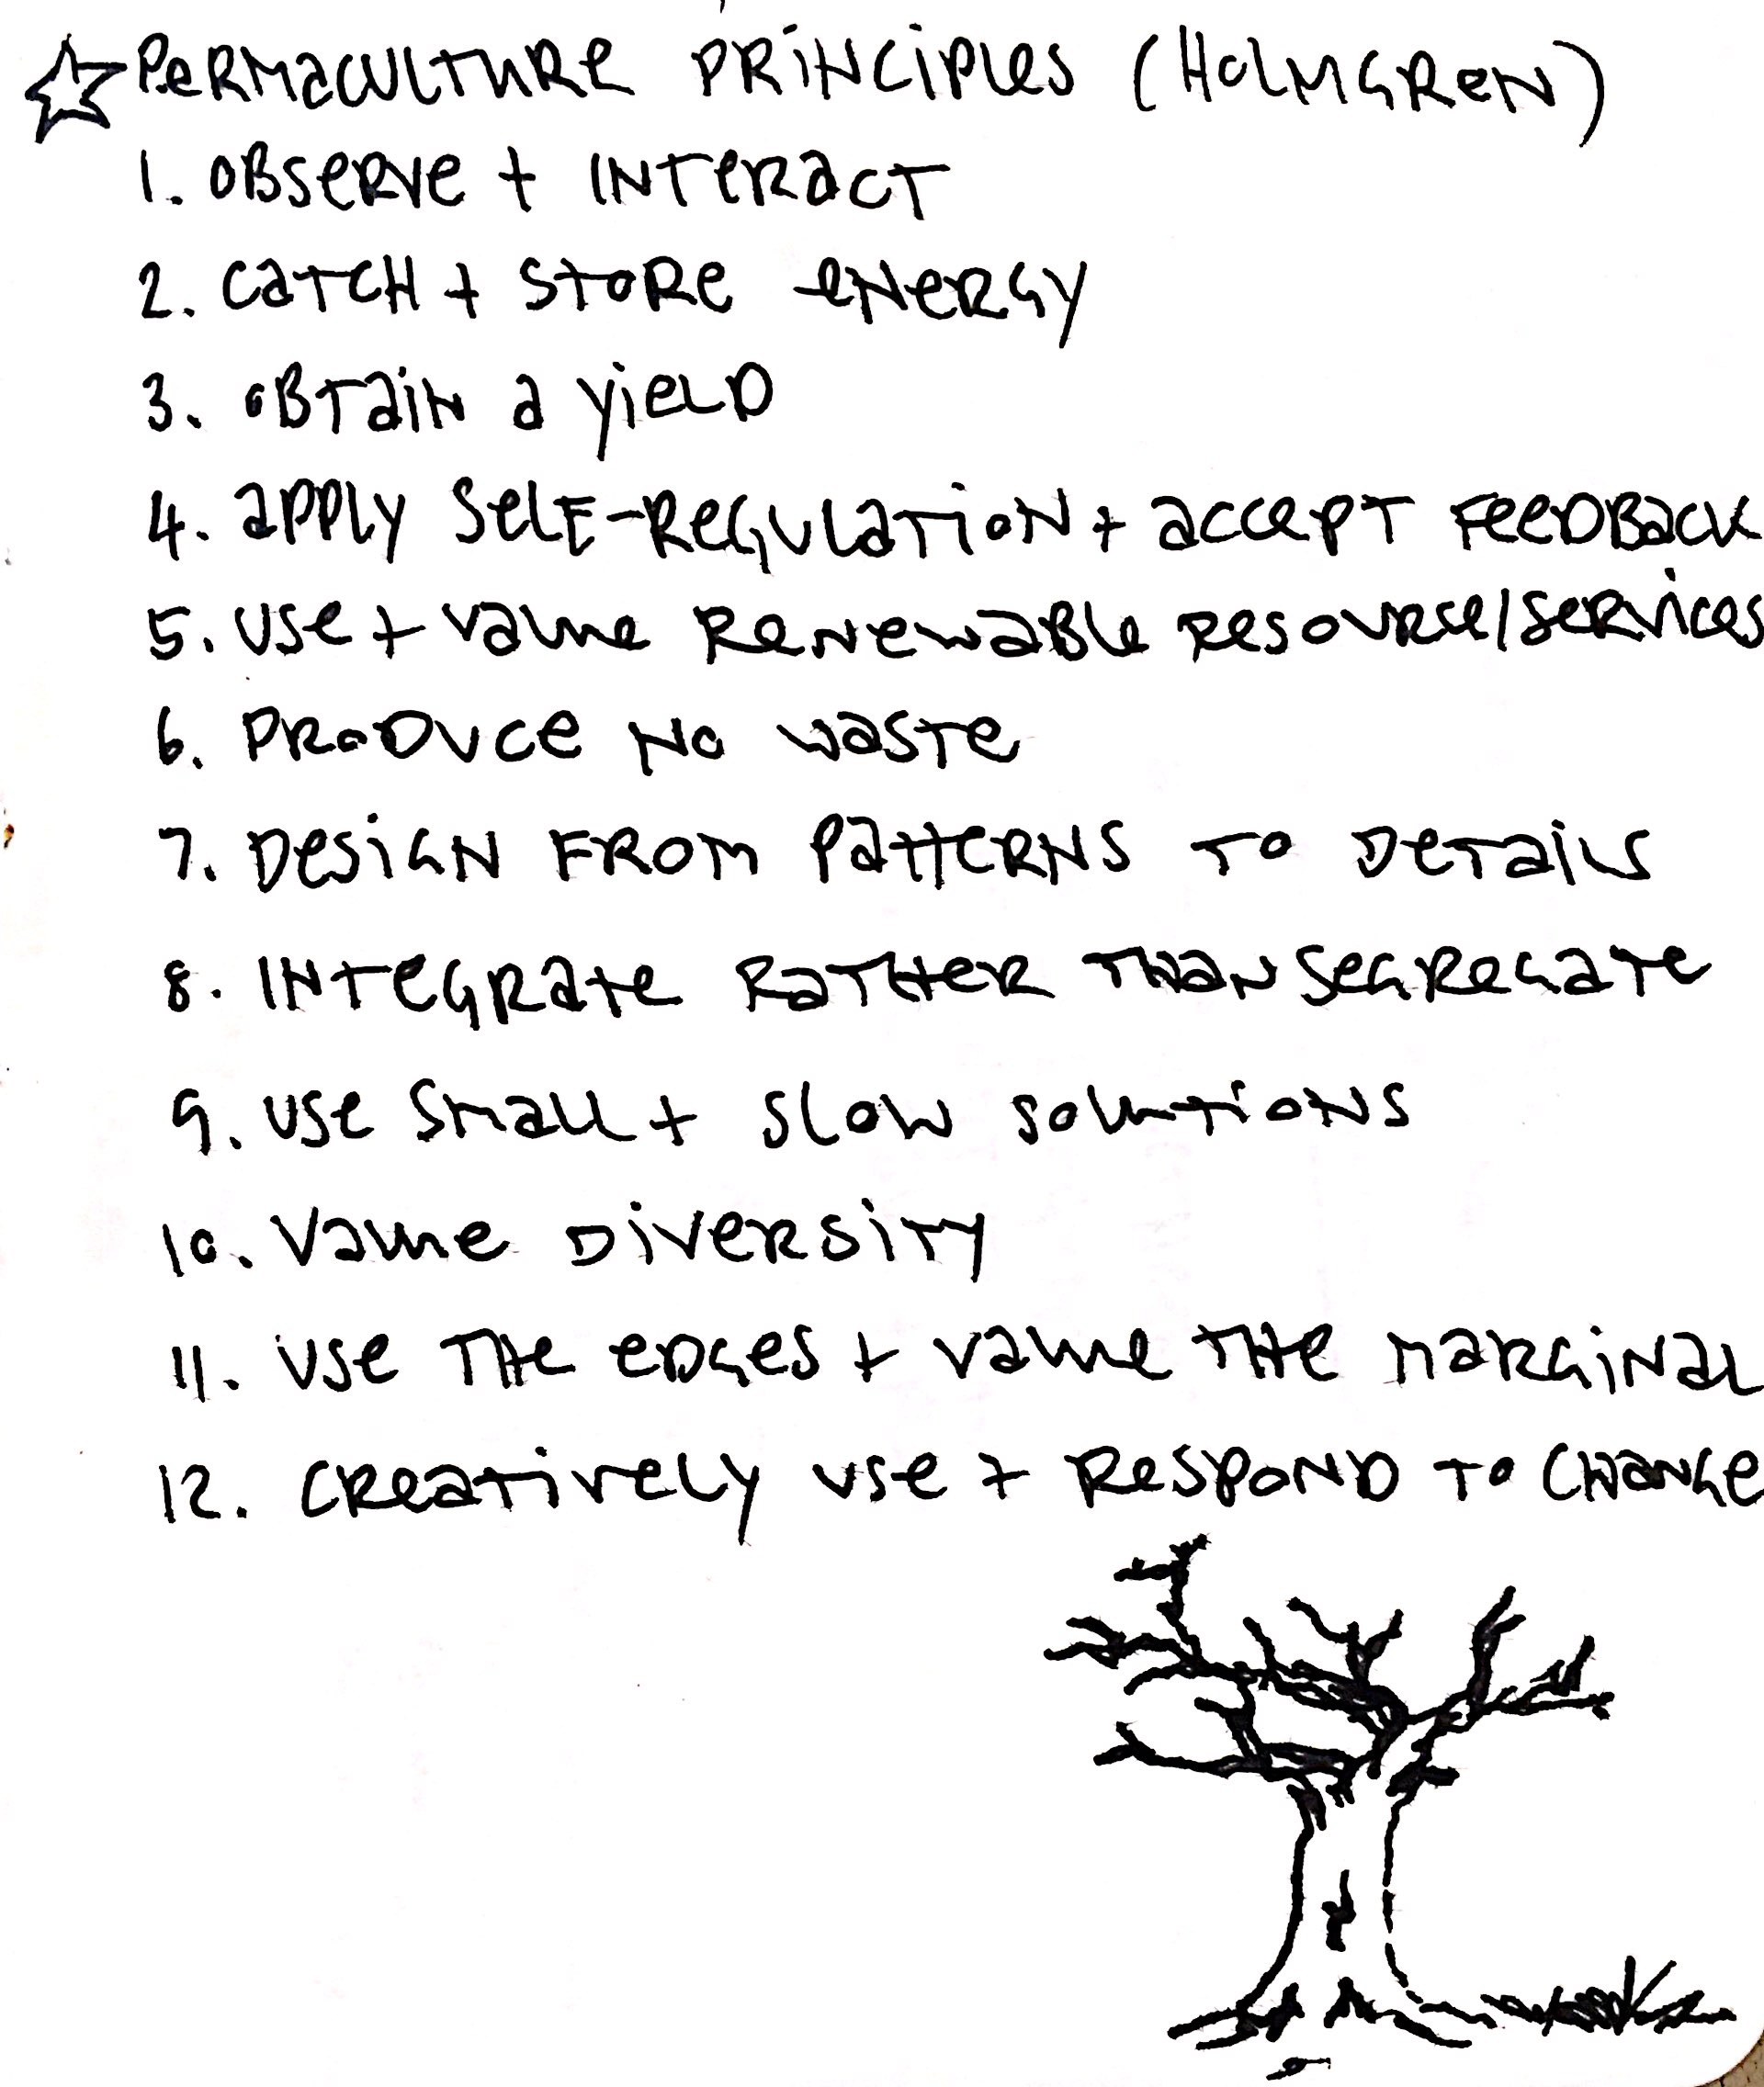 ☆ PERMACULTURE PRINCIPLES (HOLMGREN)
1. OBSERVE + INTERACT
2. CATCH + STORE ENERGY
3. OBTAIN A YIELD
4. APPLY SELF-REGULATION + ACCEPT FEEDBACK
5. USE + VALUE RENEWABLE RESOURSE/SERVICES
6. PRODUCE NO WASTE
7. DESIGN FROM PATTERNS TO DETAILS
8. INTEGRATE RATHER THAN SEGREGATE
9. USE SMALL + SLOW SOLUTIONS
10. VALUE DIVERSITY
11. USE THE EDGES + VALUE THE MARGINAL
12. CREATIVELY USE + RESPOND TO CHANGE